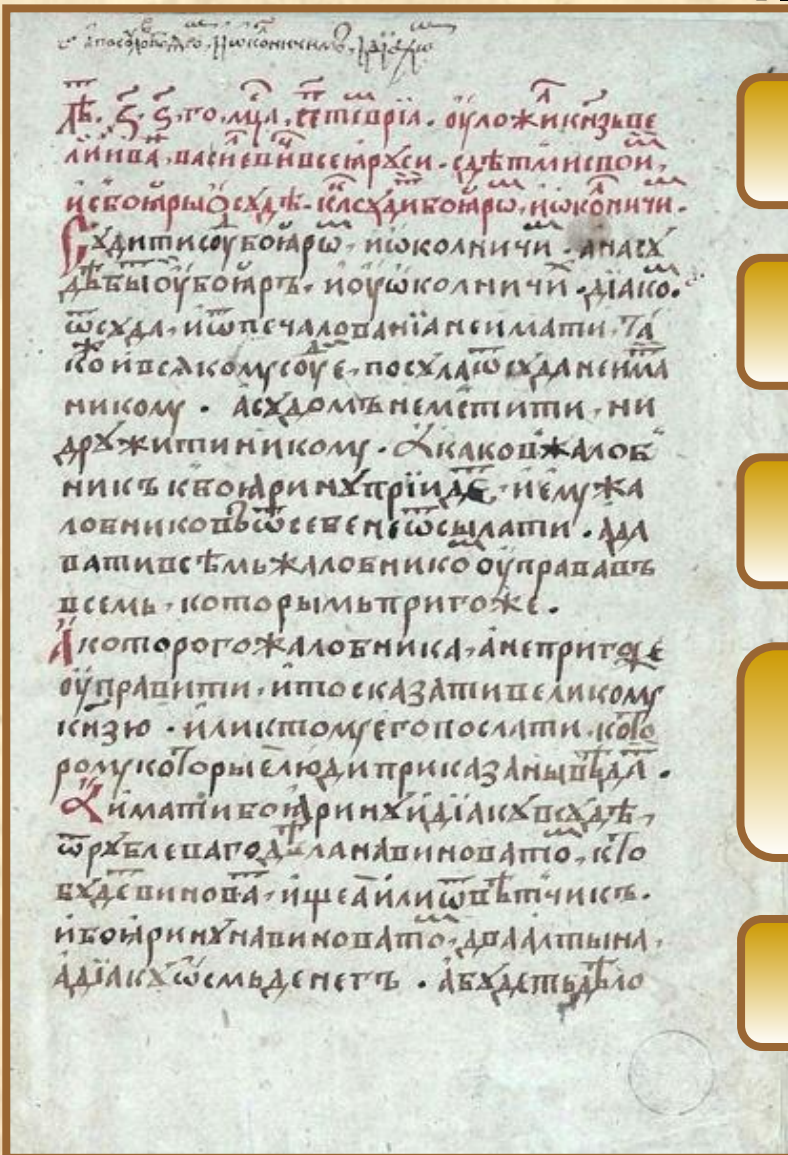 лѣ. ҂з҃. ѕ҃.го. мц҃а, септевріа. оуложи кнзь ве
ли и ва, васиеви всеѧ рꙋси. сдѣтми свои,
и сбоꙗры ѡ сꙋдѣ. ка сꙋди боꙗрѡ, и ѡконичи.
Сꙋдити сꙋ боꙗрѡ, и ѡколничи. а на сꙋ
дѣ бы оу боꙗръ. и оу ѡколничи. діако.
ѿ сꙋда, и ѿ печалованіа не имати. та
ко и всѧкомꙋ соуе, посꙋла ѿ сꙋда не има
никомꙋ. а сꙋдомъ не мстити, ни
дрꙋжити никомꙋ. А каков жалоб
никъ к боꙗринꙋ прїиде, и емꙋ жа
лобниковъ ѿ себе не ѿсылати. а да
вати всѣмь жалобнико оуправа въ
всемь, которымь пригоже.
А которого жалобника, а не пригоже
оуправити, и то сказати великомꙋ
кнзю. или к томꙋ его послати, кото
ромꙋ которые люди приказаны вѣда.
А имати боꙗринꙋ и діакꙋ в сꙋдѣ,
ѿ рꙋблева го дѣла на виновато, кто
бꙋде винова, ищеа или ѿвѣтчикъ.
и боꙗринꙋ на виновато, два алтына,
а діакꙋ ѡсмь денегъ. а бꙋдеть дѣло